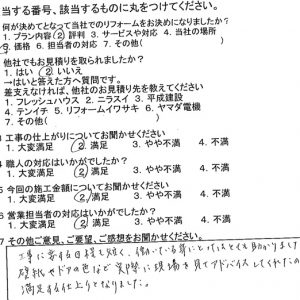 当する番号、該当するものに丸をつけてください。
何が決めてとなって当社でのリフォームをお決めになりましたか?
1. プラン内容 ② 評判 3. サービスや対応 4. 当社の場所
5. 価格 6. 担当者の対応 7. その他(
他社でもお見積りを取られましたか?
1. はい ② いいえ
→はいと答えた方へ質問です。
差支えなければ、他社のお見積り先を教えてください
1. フレッシュハウス 2. ニラスイ 3. 平成建設
4. テンイチ 5. リフォームイワサキ 6. ヤマダ電機
7. その他(
3 工事の仕上がりについてお聞かせください
1. 大変満足 ② 満足 3. やや不満 4. 不満
4 職人の対応はいかがでしたか?
1. 大変満足 ② 満足 3. やや不満 4. 不満
5 今回の施工金額についてお聞かせください
1. 大変満足 ② 満足 3. やや不満 4. 不満
6 営業担当者の対応はいかがでしたか?
1. 大変満足 ② 満足 3. やや不満 4. 不満
7 その他ご意見、ご要望、ご感想をお聞かせください。
工事に要する日程も短く、働いている身にとってはとても助かりました
壁紙やドアの色など実際に現場を見てアドバイスしてくれたので
満足する仕上りとなりました。